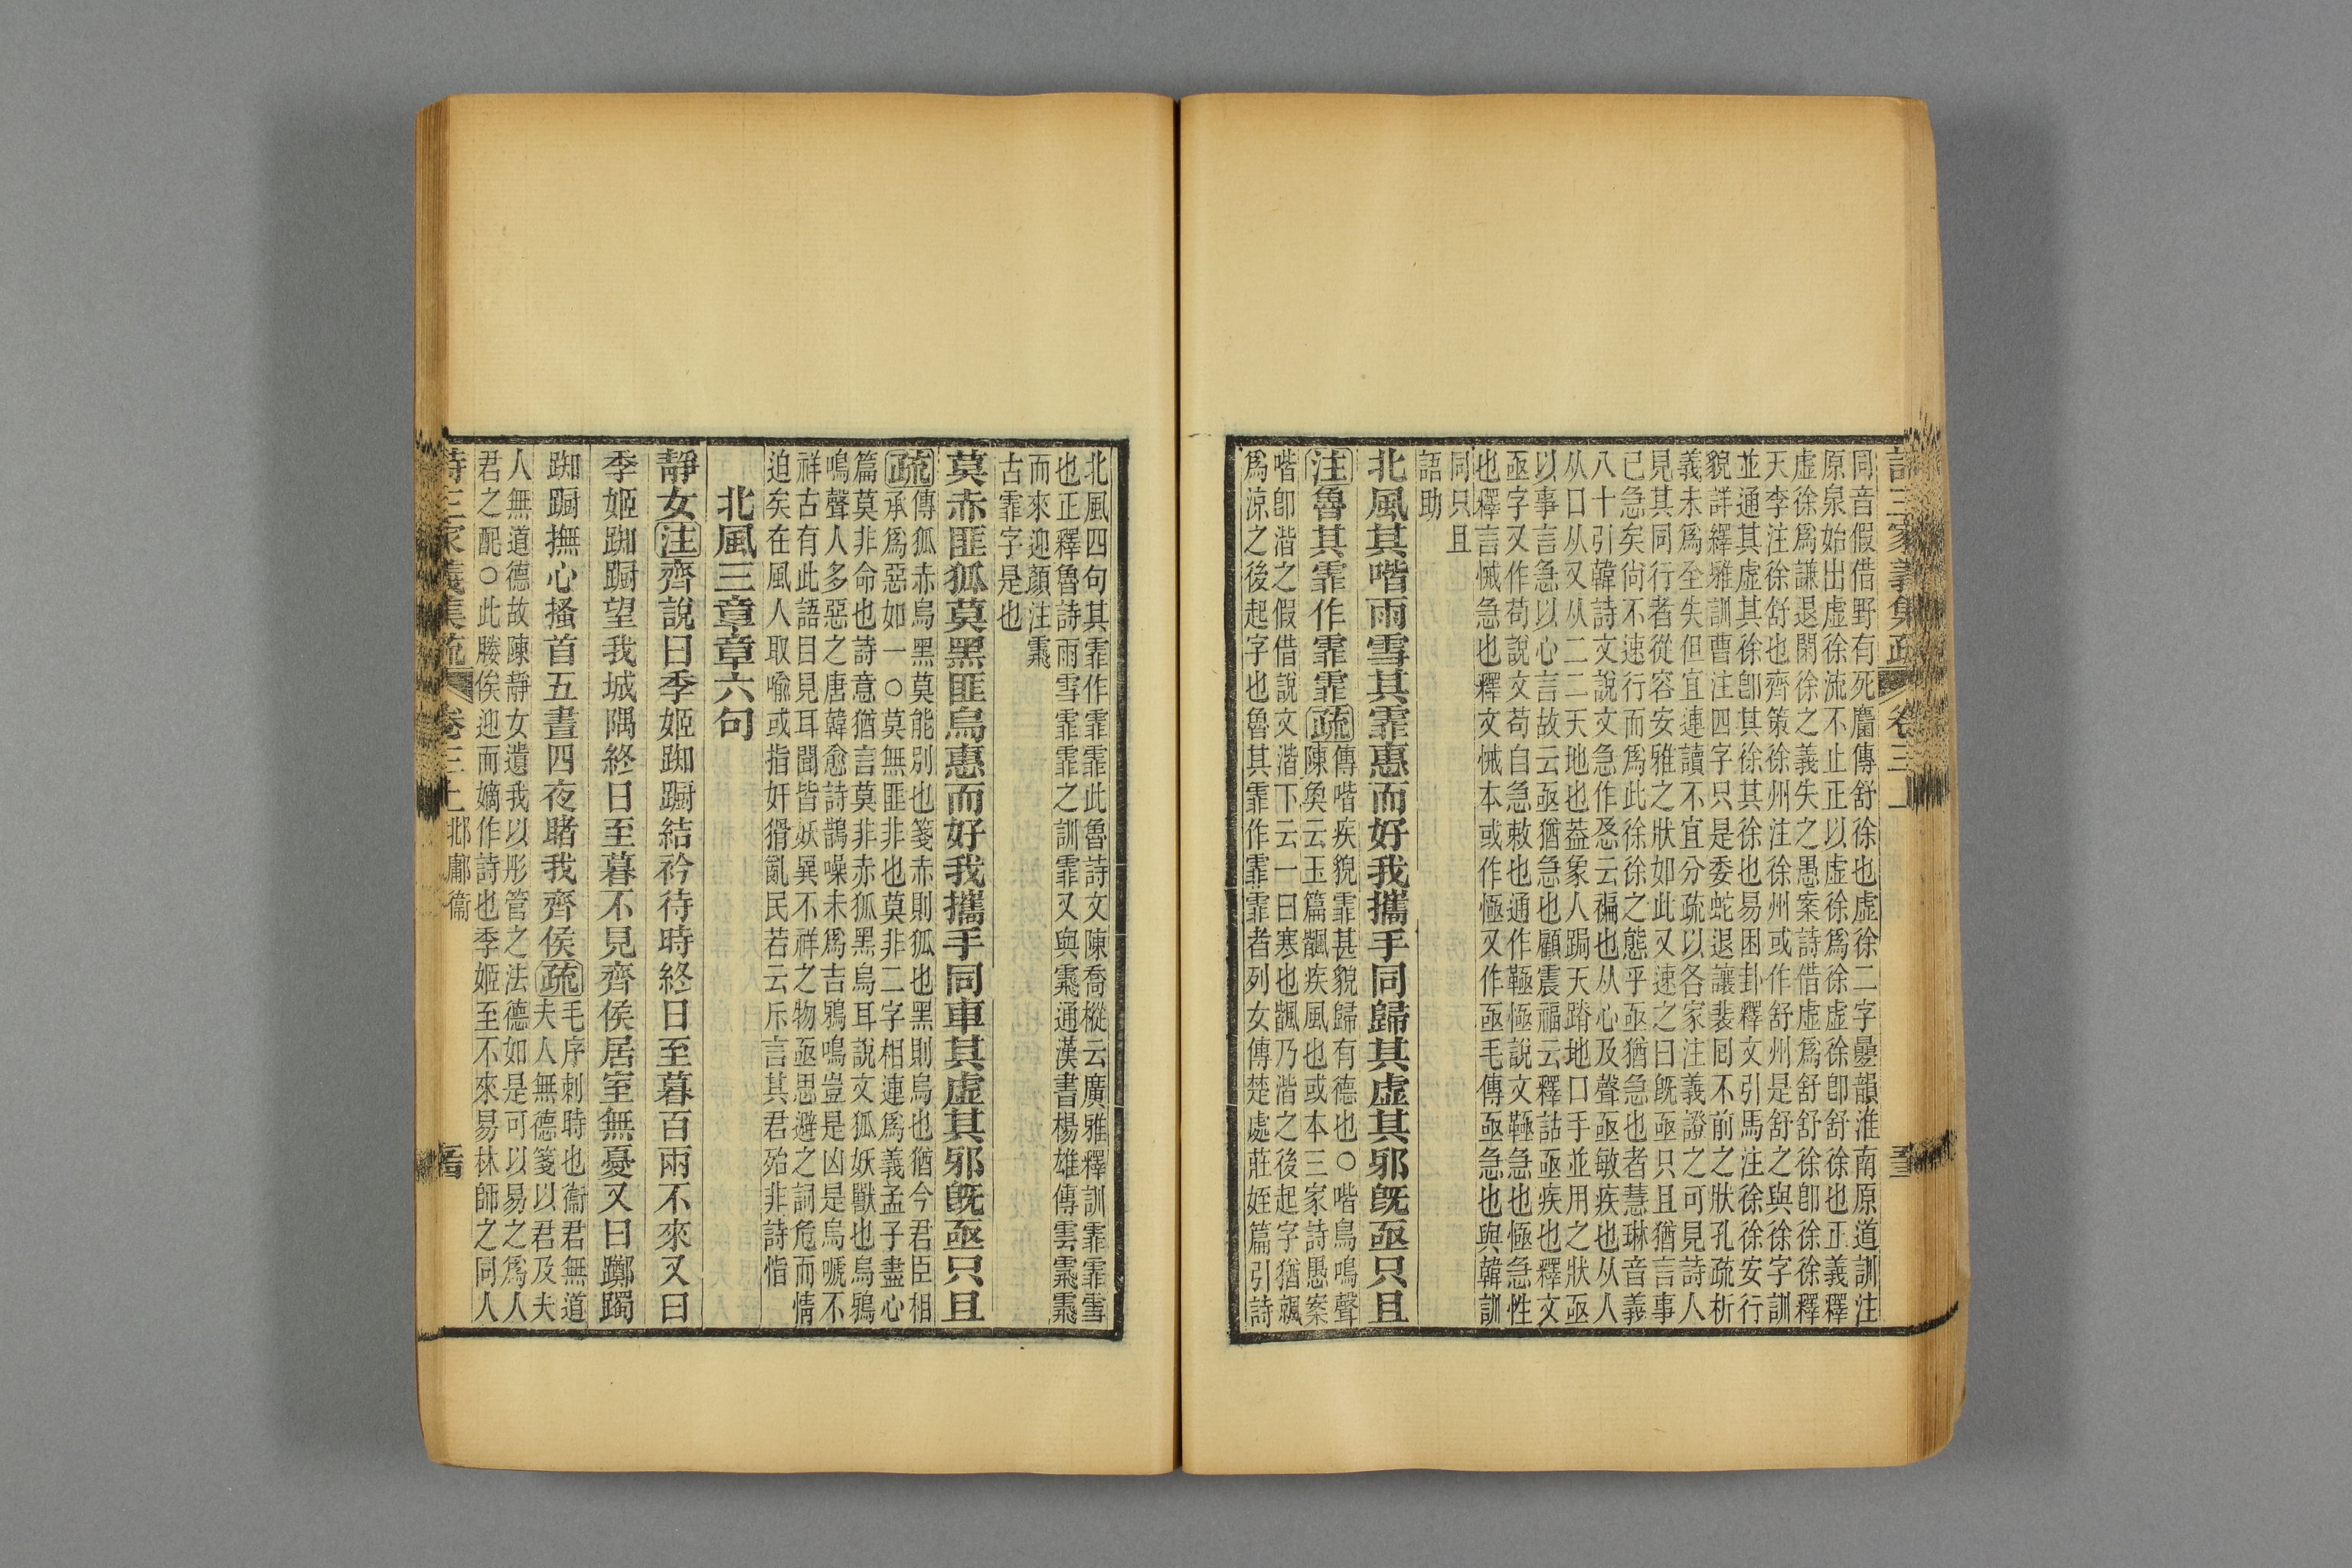 同音假借野有死麕傳舒徐也虛徐二字曡韻淮南原道訓注
原泉始出虛徐流不止正以虛徐爲徐虛徐卽舒徐也正義釋
虛徐爲謙退閑徐之義失之愚案詩借虛爲舒舒徐卽徐徐釋
天李注徐舒也齊策徐州注徐州或作舒州是舒之與徐字訓
並通其虛其徐卽其徐其徐也易困卦釋文引馬注徐徐安行
貌詳繹雅訓曹注四字只是委蛇退讓裴囘不前之狀孔疏析
義未爲至失但宜連讀不宜分疏以各家注義證之可見詩人
見其同行者從容安雅之狀如此又速之曰旣亟只且猶言事
已急矣尙不速行而爲此徐徐之態乎亟猶急也者慧琳音義
八十引韓詩文說文急作㤂云褊也从心及聲亟敏疾也从人
从口从又从二二天地也葢象人跼天蹐地口手並用之狀亟
以事言急以心言故云亟猶急也顧震福云釋詁亟疾也釋文
亟字又作苟說文苟自急敕也通作䩯㥛說文䩯急也㥛急性
也釋言悈急也釋文悈本或作㥛又作亟毛傳亟急也與韓訓
同只且
語助
北風其喈雨雪其霏惠而好我攜手同歸其虛其邪旣亟只且
注魯其霏作霏霏疏傳喈疾貌霏甚貌歸有德也○喈鳥鳴聲
陳奐云玉篇䬛疾風也或本三家詩愚案
喈卽湝之假借說文湝下云一曰寒也䬛乃湝之後起字猶飊
爲涼之後起字也魯其霏作霏霏者列女傳楚處莊姪篇引詩
北風四句其霏作霏霏此魯詩文陳喬樅云廣雅釋訓霏霏雪
也正釋魯詩雨雪霏霏之訓霏又與䬠通漢書楊雄傳雲䬠䬠
而來迎顏注䬠
古霏字是也
莫赤匪狐莫黑匪烏惠而好我攜手同車其虛其邪旣亟只且
疏傳狐赤烏黑莫能別也箋赤則狐也黑則烏也猶今君臣相
承爲惡如一○莫無匪非也莫非二字相連爲義孟子盡心
篇莫非命也詩意猶言莫非赤狐黑烏耳說文狐妖獸也烏鴉
鳴聲人多惡之唐韓愈詩鵲噪未爲吉鴉鳴豈是凶是烏嗁不
祥古有此語目見耳聞皆妖異不祥之物亟思避之詞危而情
迫矣在風人取喩或指奸猾亂民若云斥言其君殆非詩恉
北風三章章六句
靜女注齊說曰季姬踟躕結衿待時終日至暮百兩不來又曰
季姬踟躕望我城隅終日至暮不見齊侯居室無憂又曰躑躅
踟躕撫心搔首五晝四夜睹我齊侯疏毛序刺時也衞君無道
夫人無德箋以君及夫
人無道德故陳靜女遺我以彤管之法德如是可以易之爲人
君之配○此媵俟迎而嫡作詩也季姬至不來易林師之同人
詩三家義集疏 卷三上 邶鄘衞